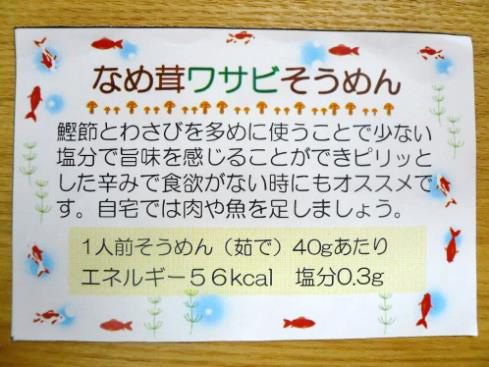 なめ茸ワサビそうめん
鰹節とわさびを多めに使うことで少ない
塩分で旨味を感じることができピリッと
した辛みで食欲がない時にもオススメで
す。自宅では肉や魚を足しましょう。
1人前そうめん（茹で）40gあたり
エネルギー５６kcal　塩分0.3g